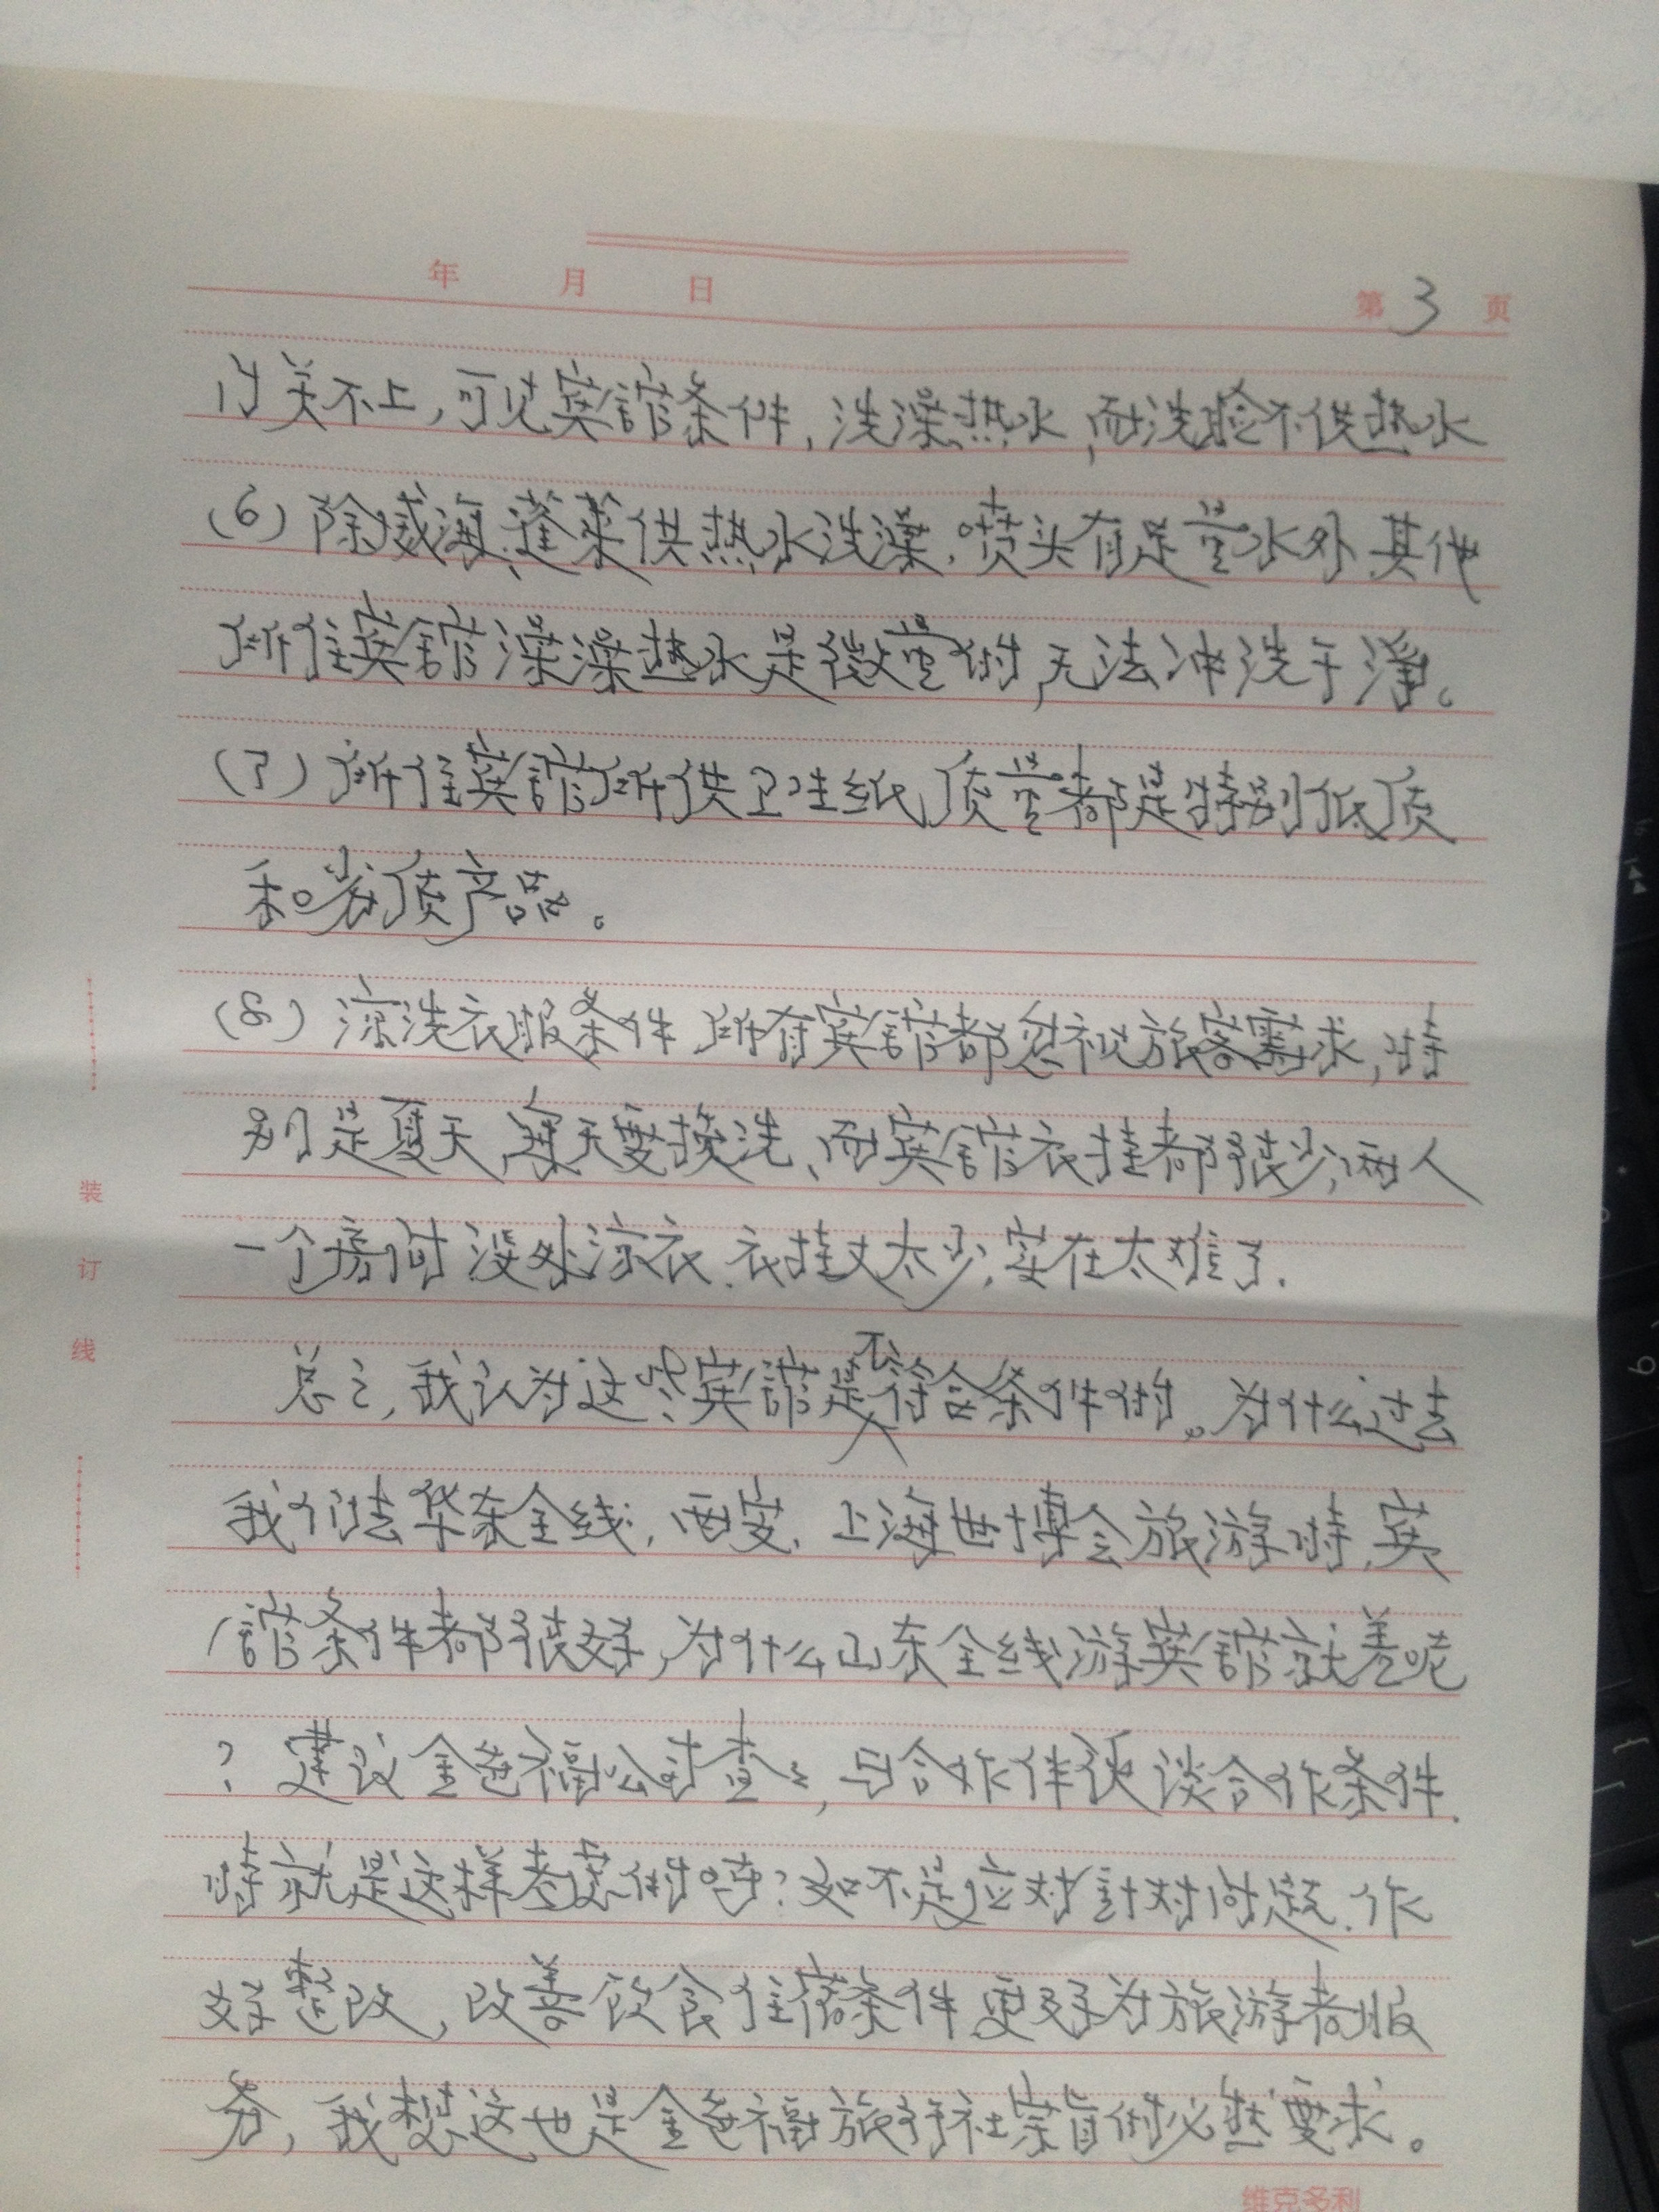 年 月 日 第 3 页
关不上,可见宾馆条件,洗澡热水,而洗脸不供热水
(6)除威海、蓬莱供热水洗澡,喷头有足量水外,其他
所住宾馆澡澡热水是微量的,无法冲洗干净。
(7)所住宾馆所供卫生纸,质量都是特别低质
和劣质产品。
(8)凉洗衣服条件,所有宾馆都忽视旅客需求,特
别是夏天,每天要换洗,而宾馆衣挂都很少,两人
一个房间没处凉衣.衣挂又太少,实在太难了.
总之,我认为这些宾馆是不符合条件的。为什么过去
我们去华东全线,西安,上海世博会旅游时,宾
馆条件都很好,为什么山东全线游宾馆就差呢
?建议金色福公司查查,与合作伙伴谈合作条件.
时就是这样考虑的吗?如不是应对针对问题.作
好整改,改善饮食住宿条件,更好为旅游者服
务,我想这也是金色福旅行社宗旨的必然要求。
装
订
线
维克多利